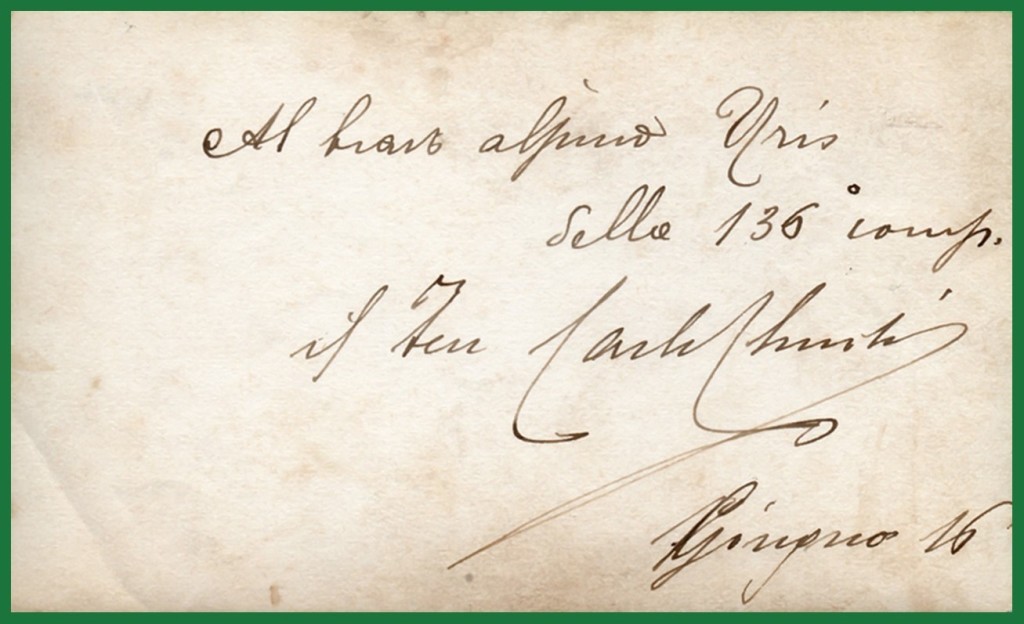 Al bravo alpino Uris
della 136° comp.
il Ten Carlo
Giugno 16